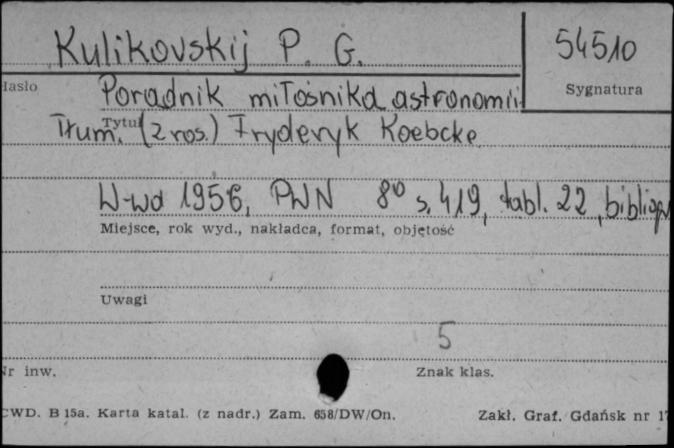 Kulikovskij P. G.
54510
Hasło
Sygnatura
Poradnik miłośnika astronomii
Tytuł
Tłum. (z ros.) Fryderyk Koebcke
W-wa 1956, PWN 8º s. 419, tabl. 22, bibliogr
Miejsce, rok wyd., nakładca, format, objętość
Uwagi
5
Nr inw.
Znak klas.
CWD. B 15a. Karta katal. (z nadr.) Zam. 658/DW/On.
Zakł. Graf. Gdańsk nr 1